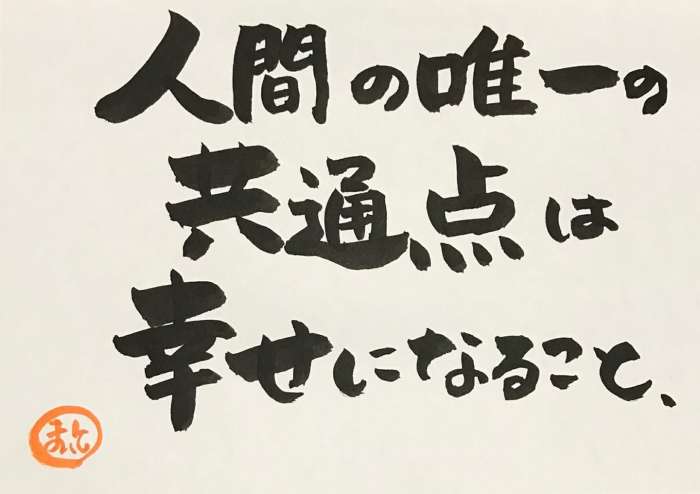 人間の唯一の
共通点は
幸せになること、